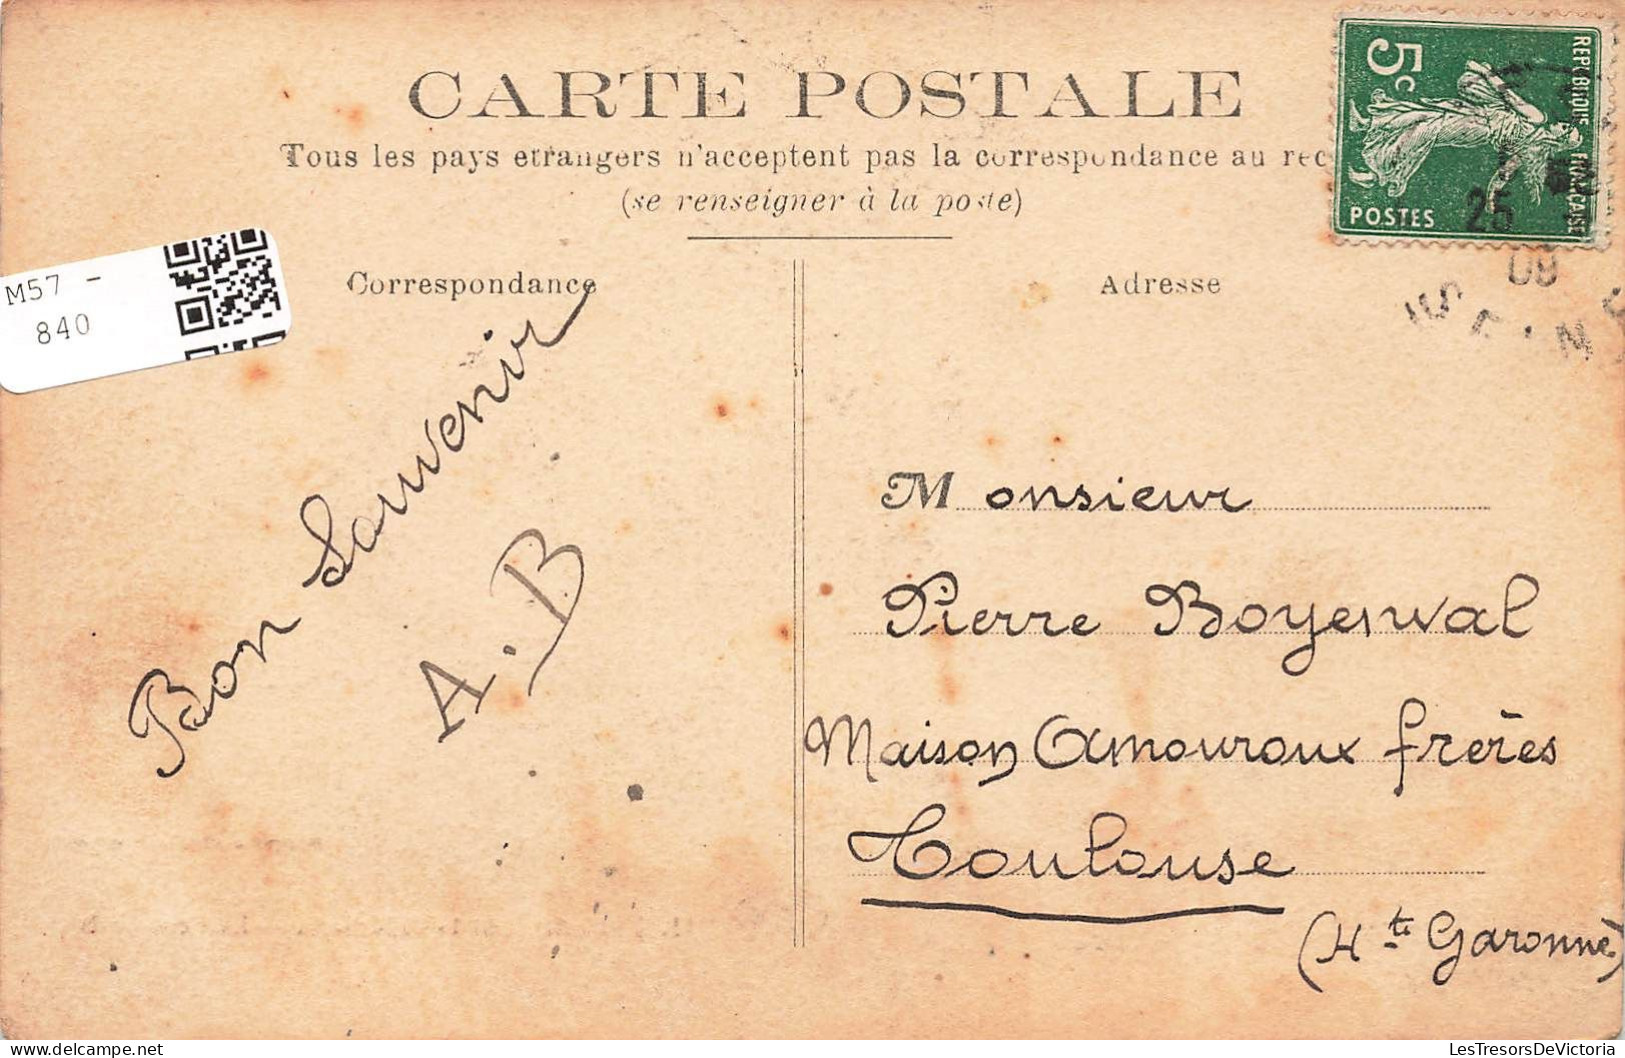 CARTE POSTALE
Tous les pays etrangers n'acceptent pas la correspondance au rec
(se renseigner à la poste)
Correspondance
Adresse
5c
REPUBLIQUE FRANCAISE
POSTES
25
09
M57 -
840
Bon Souvenir
A.B
Monsieur
Pierre Boyenval
Maison Amouroux frères
Toulouse
(Hte Garonne)
LesTresorsDeVictoria